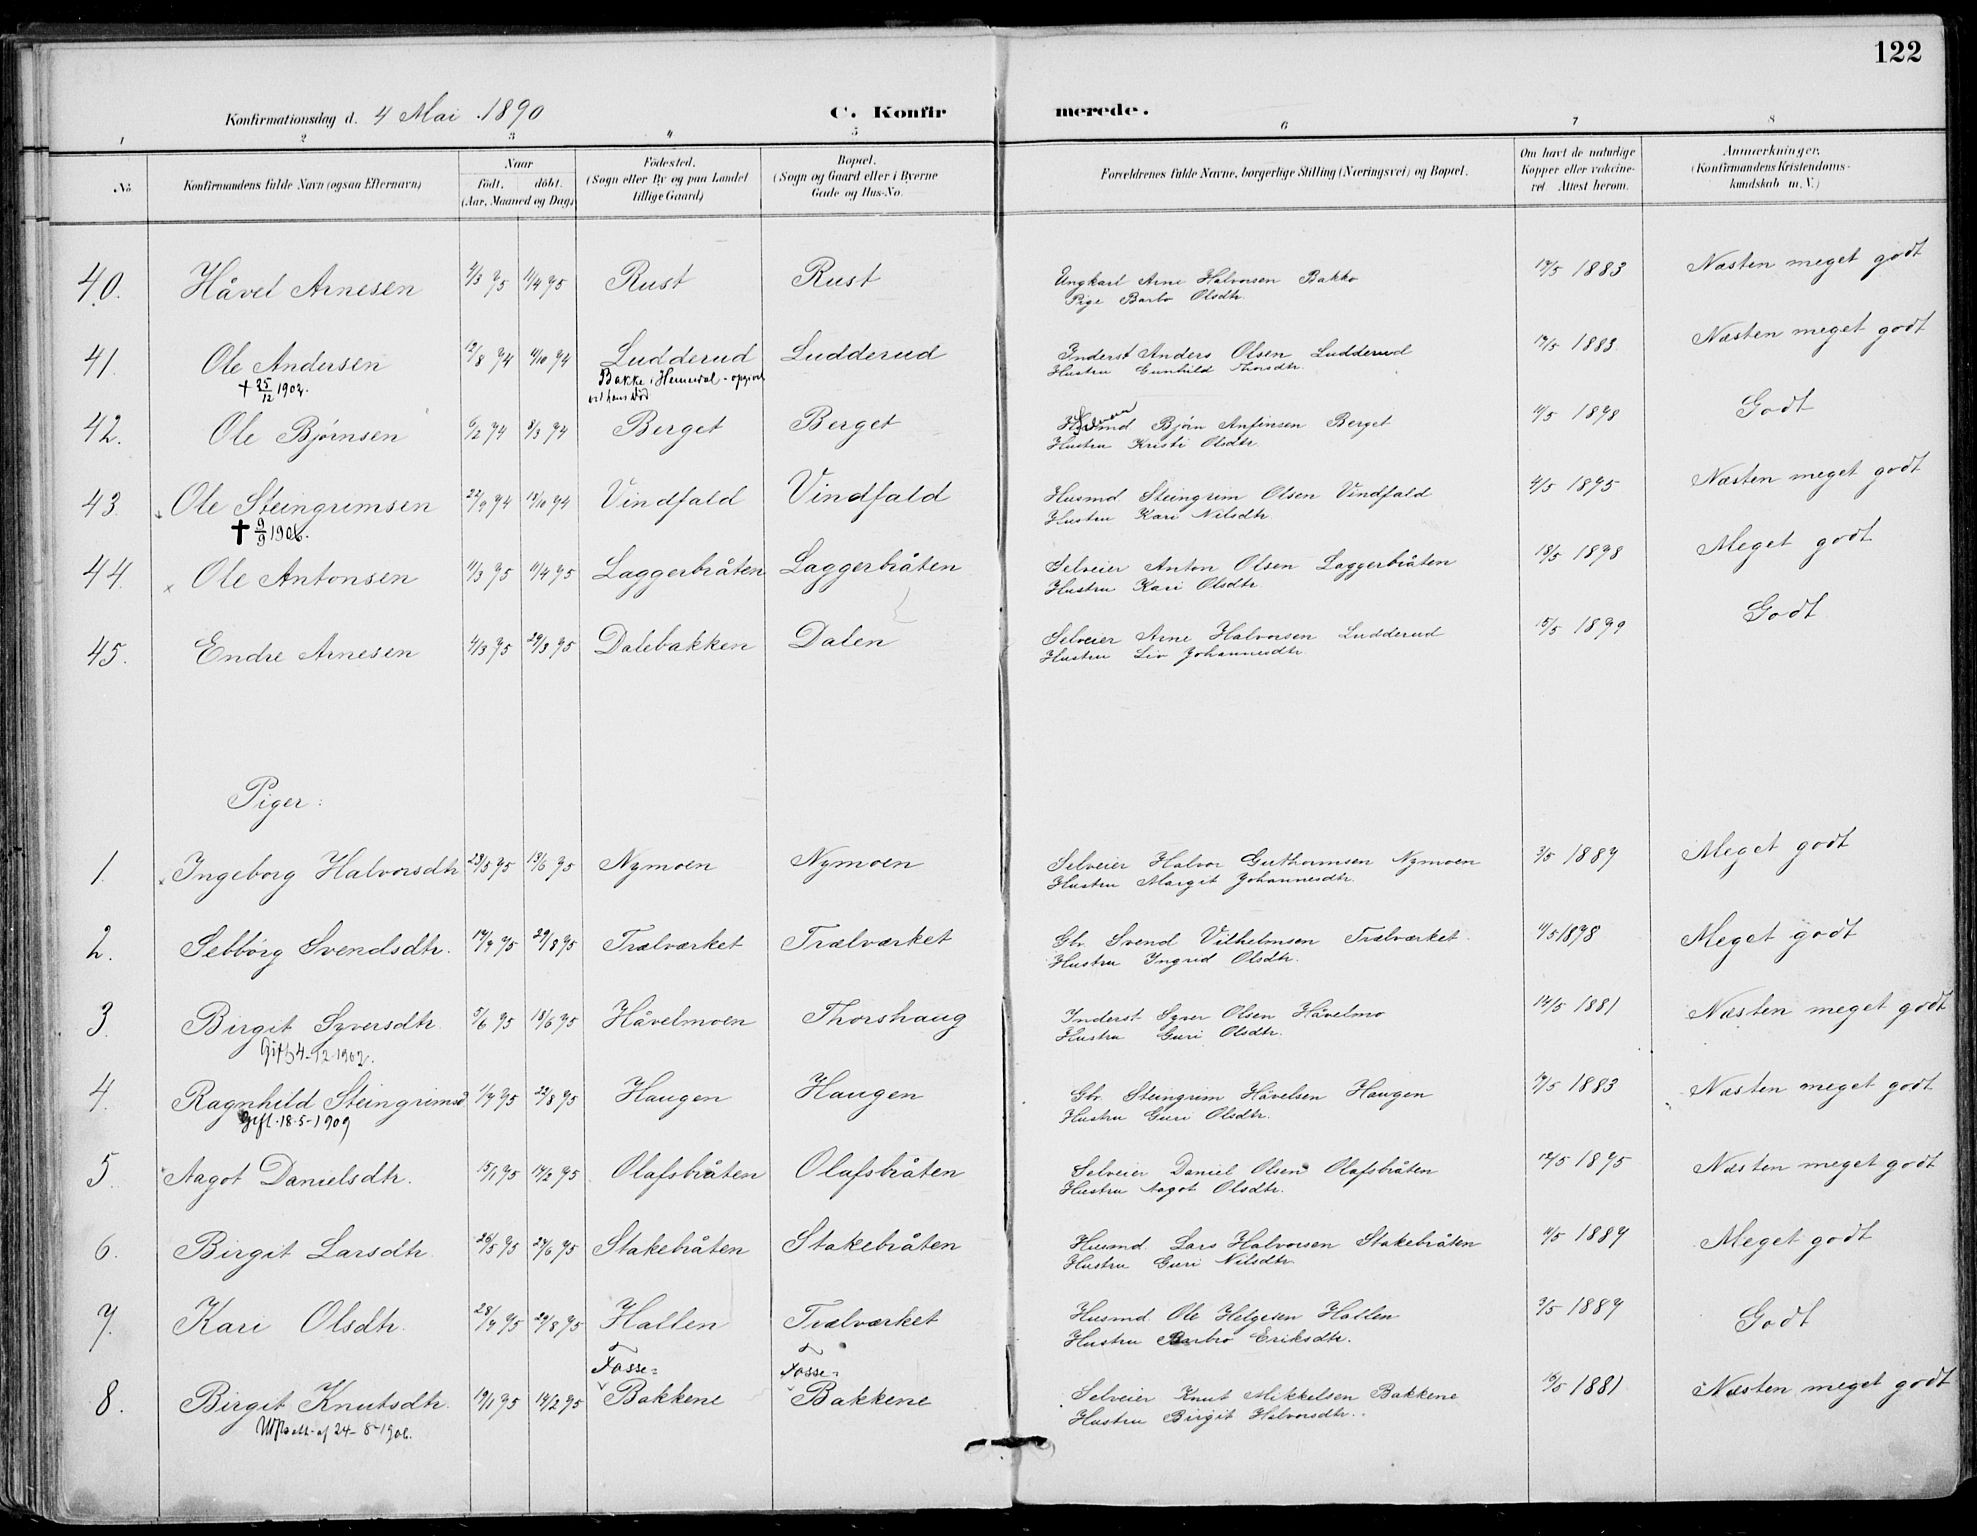 122
Konfirmationsdag d. 4 Mai 1890
C. Konfirmerede.
1 2 3 4 5 6 7 8
No.
Konfirmandens fulde Navn (ogsaa Efternavn)
Naar
født. døbt.
(Aar, Maaned og Dag)
Fødested.
(Sogn eller By og paa Landet
tillige Gaard)
Bopæl.
(Sogn og Gaard eller i Byerne
Gade og Hus-No.
Forældrenes fulde Navne, borgerlige Stilling (Næringsvei) og Bopæl.
Om havt de naturlige
Kopper eller vakcine-
ret. Attest herom.
Anmærkninger.
(Konfirmandens Kristendoms-
kundskab m. V.)
40. Håvel Arnesen 4/3 75 11/4 75 Rust Rust Ungkarl Arne Halvorsen Bakko 1883 Næsten meget godt
Pige Barbo Olsdtr.
41. Ole Andersen 12/8 74 4/10 74 Ludderud Ludderud Inderst Anders Olsen Ludderud 1883. Næsten meget godt
† 25/12 1902. Bakke i Hemsedal - opgivet
ved hans død
Hustru Gunhild Thorsdtr.
42. Ole Bjørnsen 6/2 74 8/3 74 Berget Berget Selveier Bjørn Anfinsen Berget 11/5 1878 Godt
Hustru Kristi Olsdtr.
43. Ole Steingrimsen 22/9 74 18/10 74 Vindfald Vindfald Husmd Steingrim Olsen Vindfald 4/5 1875 Næsten meget godt
† 9/9 1906. Hustru Kari Nilsdtr.
44. Ole Antonsen 11/3 75 11/4 75 Laggerbråten Laggerbråten Selveier Anton Olsen Laggerbråten 18/5 1878 Meget godt
Hustru Kari Olsdtr.
45. Endre Arnesen 4/3 75 29/3 75 Dalebakken Dalen Selveier Arne Halvorsen Ludderud 15/5 1879 Godt
Hustru Liv Johannesdtr.
Piger:
1. Ingeborg Halvorsdtr 23/5 75 13/6 75 Nymoen Nymoen Selveier Halvor Guthormsen Nymoen 3/5 1887 Meget godt
Hustru Margit Johannesdtr.
2. Sebbórg Svendsdtr. 14/7 75 29/8 75 Trælværket Trælværket Gbr. Svend Vilhelmsen Trælværket. 11/5 1878 Meget godt
Hustru Ingrid Olsdtr.
3. Birgit Syversdtr. 5/6 75 18/6 75 Håvelmoen Thorshaug Inderst Syver Olsen Håvelmo 14/5 1881 Næsten meget godt
Gift 4-12-1902. Hustru Guri Olsdtr.
4. Ragnhild Steingrimsd 1/7 75 22/8 75 Haugen Haugen Gbr. Steingrim Håvelsen Haugen 1883 Næsten meget godt
Gift. 18-5-1909 Hustru Guri Olsdtr.
5. Aagot Danielsdtr. 15/1 75 14/2 75 Olafsbråten Olafsbråten Selveier Daniel Olsen Olafsbråten 12/5 1875 Næsten meget godt
Hustru Aagot Olsdtr.
6. Birgit Larsdtr. 26/5 75 27/6 75 Stakebråten Stakebråten Husmd. Lars Halvorsen Stakebråten 11/5 1884 Meget godt
Hustru Guri Nilsdtr.
7. Kari Olsdtr. 28/7 75 29/8 75 Hallen Trælværket Husmd. Ole Helgesen Hallen 3/5 1887 Godt
Hustru Barbro Eriksdtr.
Fosse= Fosse=
8. Birgit Knutsdtr. 19/1 75 14/2 75 Bakkene Bakkene Selveier Knut Mikkelsen Bakkene 1881 Næsten meget godt
24-8-1906. Hustru Birgit Halvorsdtr.